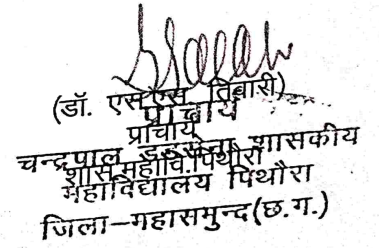 (डॉ. एस.एस. तिवारी)
प्राचार्य
प्राचार्य
चन्द्रपाल डडसेना शासकीय
शास.महावि.पिथौरा
महाविद्यालय पिथौरा
जिला-महासमुन्द(छ.ग.)